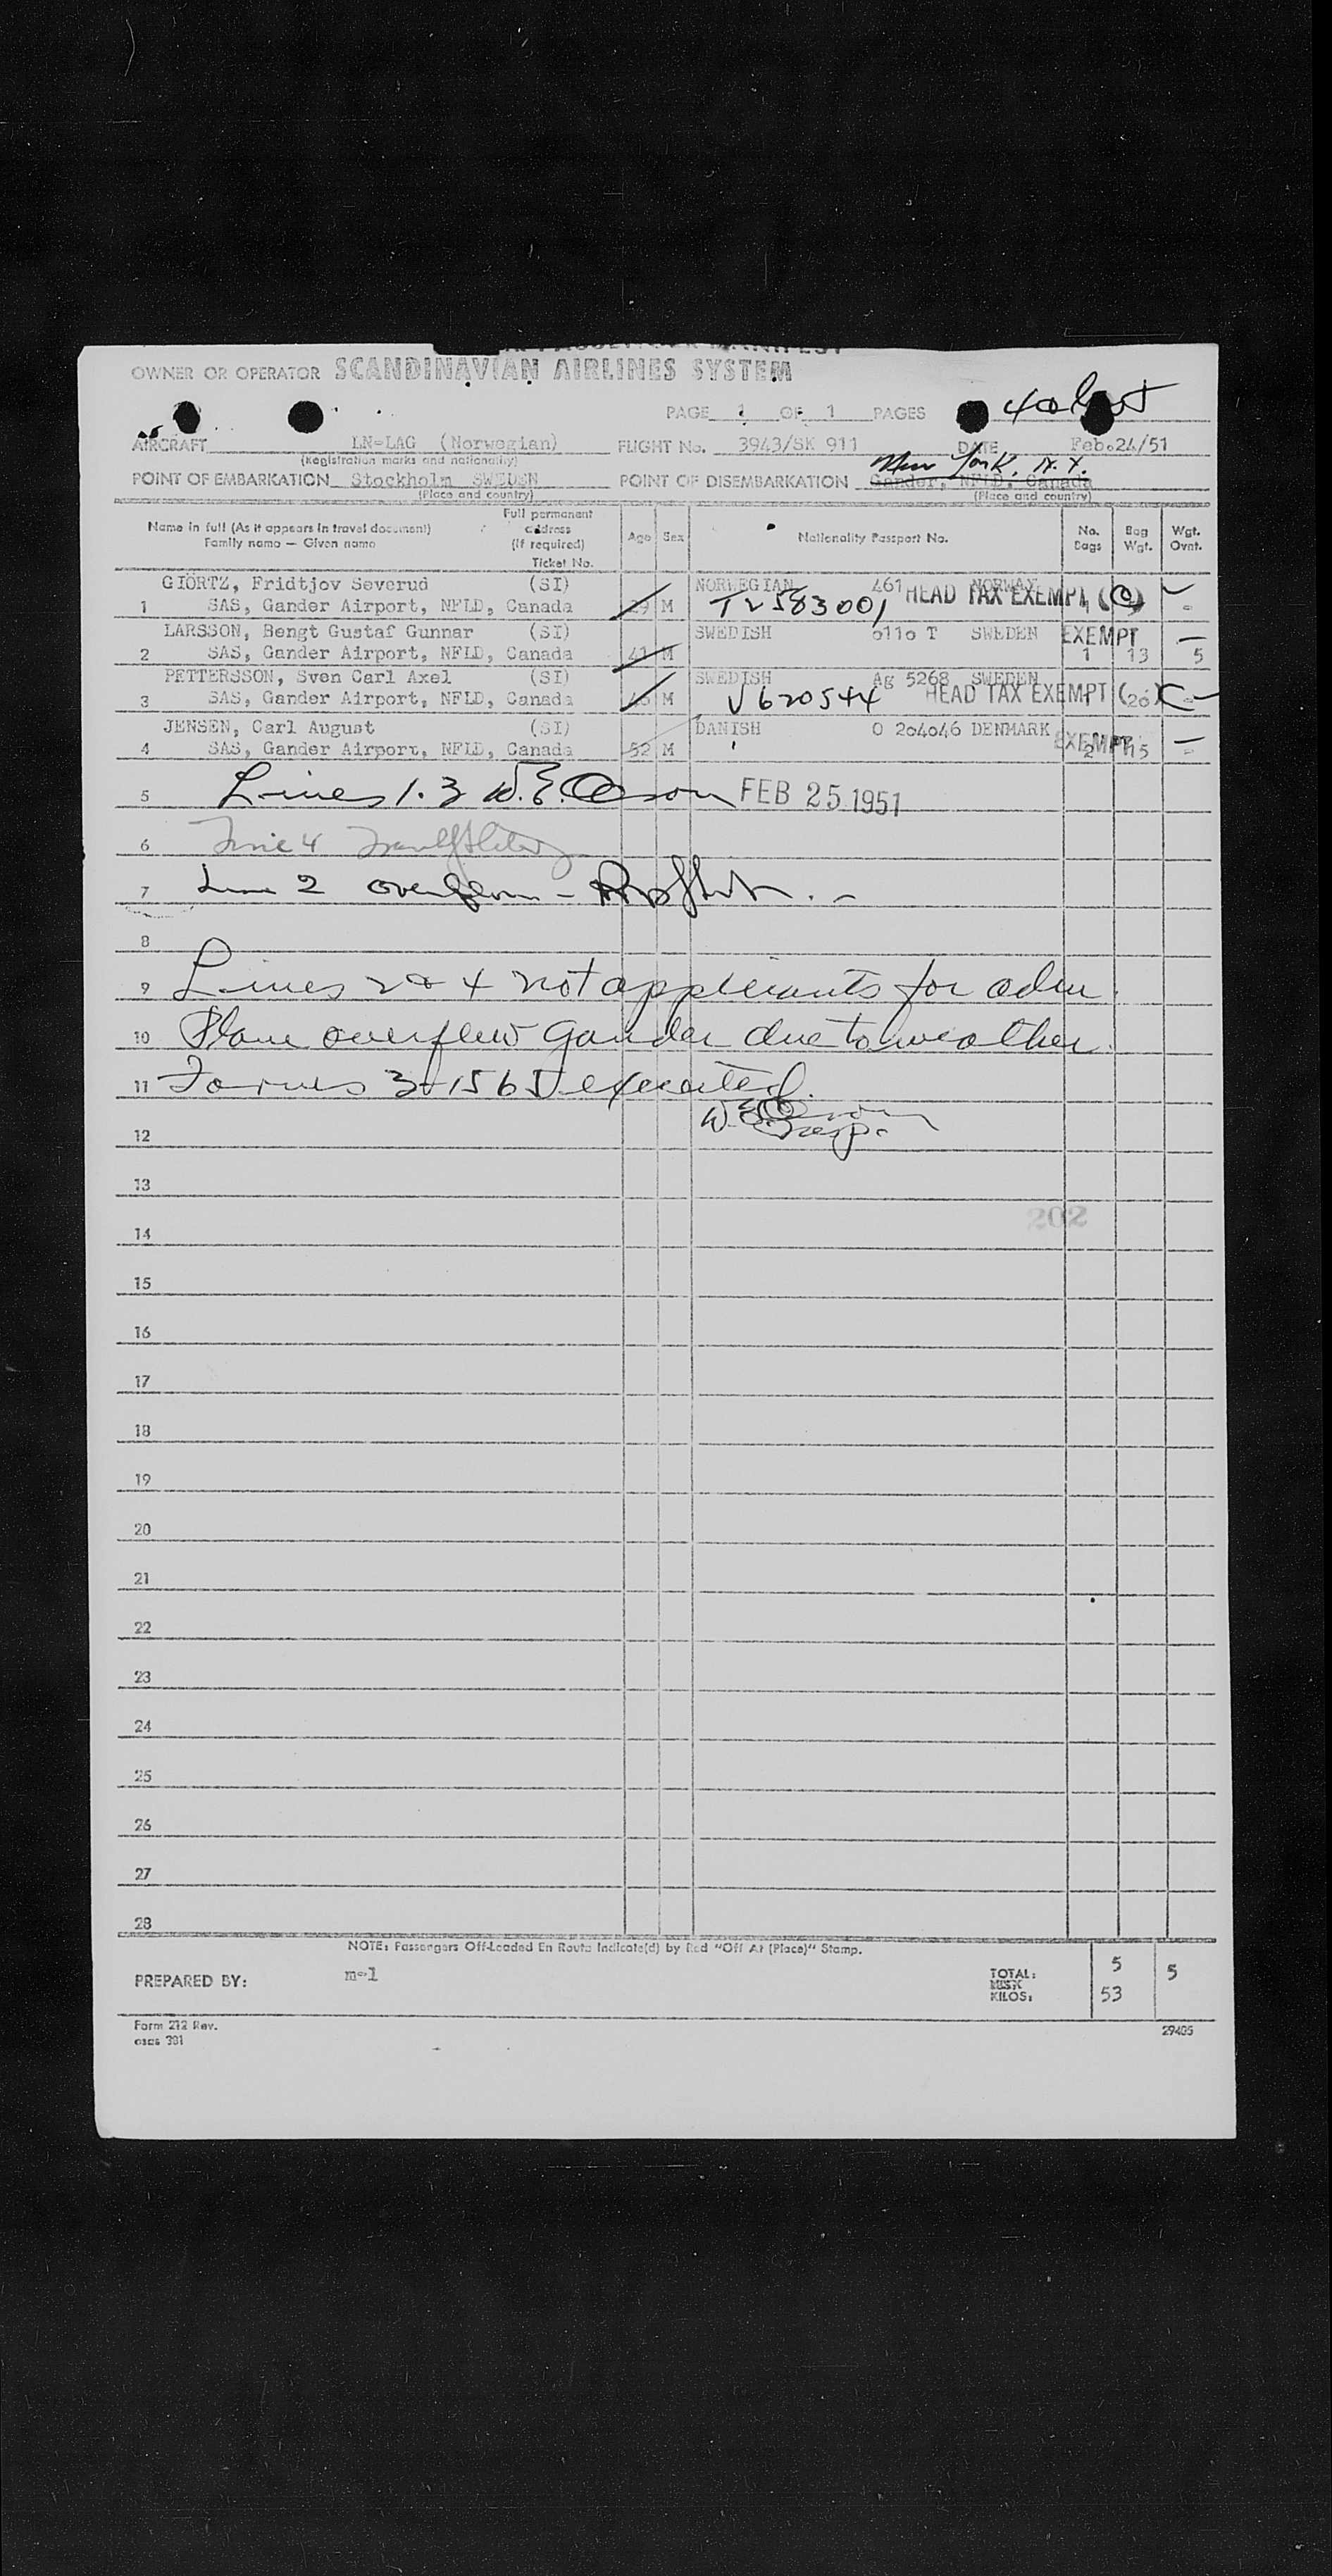 OWNER OR OPERATOR SCANDINAVIAN AIRLINES SYSTEM
PAGE 1 OF 1 PAGES
AIRCRAFT LN-LAG (Norwegian) FLIGHT No. 3943/SK 911 DATE Feb.24/51
(Registration marks and nationality)
New York, N.Y.
POINT OF EMBARKATION Stockholm SWEDEN POINT OF DISEMBARKATION Gander, NFLD, Canada
(Place and country) (Place and country)
Name in full (As it appears in travel document) Full permanent address (If required) Age Sex Nationality Passport No. No. Bags Bag Wgt. Wgt. Ovnt.
Family name — Given name Ticket No.
GIÖRTZ, Fridtjov Severud (SI) NORWEGIAN 461 NORWAY
1 SAS, Gander Airport, NFLD, Canada 29 M T2583001 HEAD TAX EXEMPT
LARSSON, Bengt Gustaf Gunnar (SI) SWEDISH o11o T SWEDEN EXEMPT
2 SAS, Gander Airport, NFLD, Canada 41 M 1 13 5
PETTERSSON, Sven Carl Axel (SI) SWEDISH Ag 5268 SWEDEN
3 SAS, Gander Airport, NFLD, Canada M V620544 HEAD TAX EXEMPT
JENSEN, Carl August (SI) DANISH O 2o4o46 DENMARK
4 SAS, Gander Airport, NFLD, Canada 52 M EXEMPT 2 15 -
5 Lines 1-3 W.E. FEB 25 1951
6 Line 4
7 Line 2 overflown -
8
9 Lines 2 & 4 not applicants for adm.
10 Plane overflew Gander due to weather.
11 Forms 3 I-565 executed.
12 W.E. Insp.
13
202
14
15
16
17
18
19
20
21
22
23
24
25
26
27
28
NOTE: Passengers Off-Loaded En Route Indicate(d) by Red "Off At (Place)" Stamp.
PREPARED BY: m-l TOTAL: 5 5
KILOS: 53
Form 212 Rev. 29405
osas 301